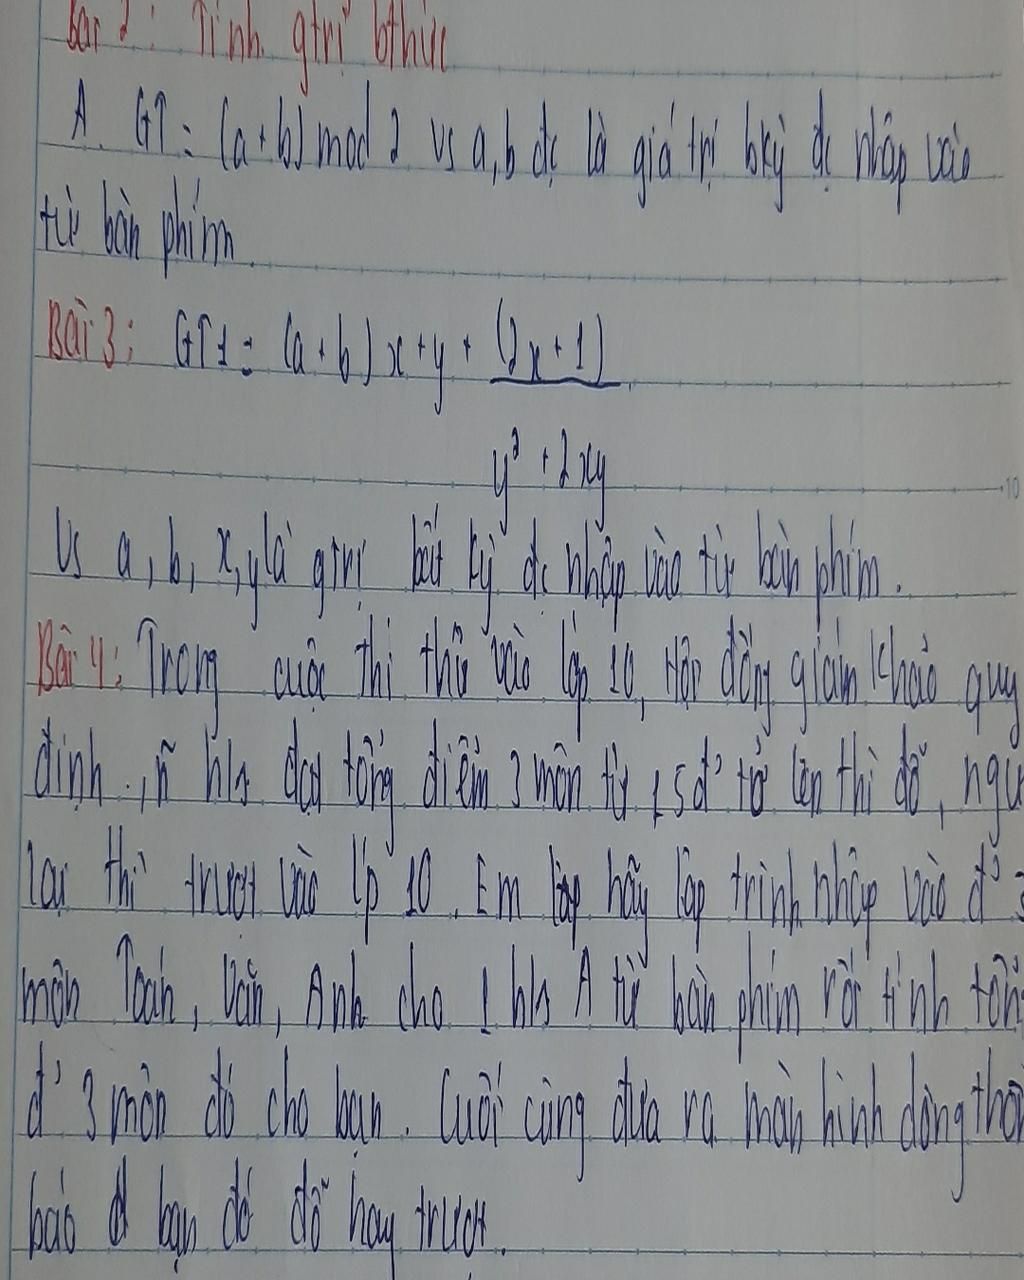 Bài 2: Tính gtrị bthức
A. GT = (a + b) mod 2 vs a, b đc là giá trị bkỳ đc nhập vào
từ bàn phím.
Bài 3: GT1 = (a + b) x + y + (2x + 1)
y² + 2xy
Vs a, b, x, y là gtrị bất kỳ đc nhập vào từ bàn phím.
Bài 4: Trong cuộc thi thử vào lớp 10, Hội đồng giám khảo quy
định, ñ hls đạt tổng điểm 3 môn từ 15đ' trở lên thì đỗ, ngư
lại thì trượt vào lp 10. Em hãy lập trình nhập vào đ' 3
môn Toán, Văn, Anh cho 1 hls A từ bàn phím rồi tính tổn
đ' 3 môn đó cho bạn. Cuối cùng đưa ra màn hình dòng thôn
báo bạn đó đỗ hay trượt.